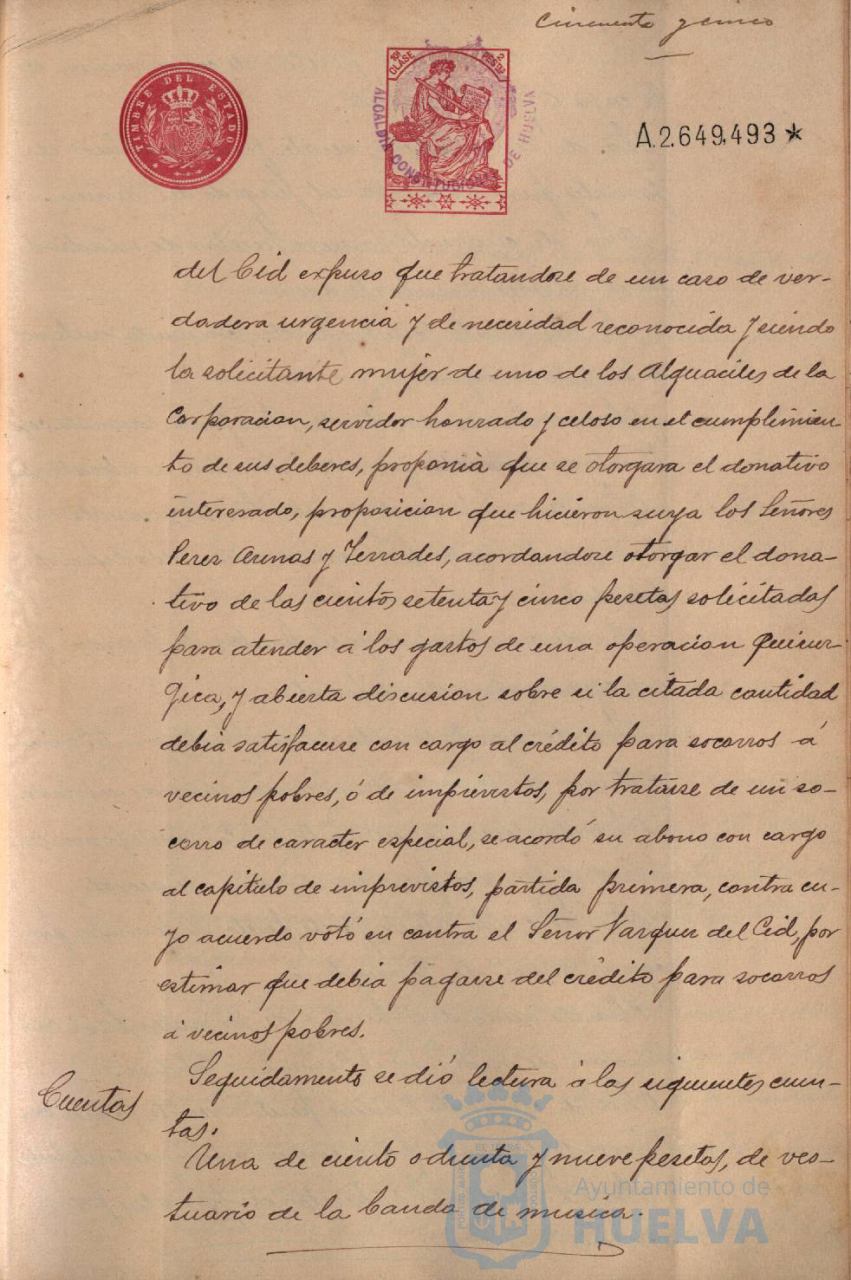 Cincuenta y cinco
TIMBRE DEL ESTADO
10ª CLASE
2 PESETAS
ALCALDIA CONSTITUCIONAL DE HUELVA
A.2.649.493 *
del Cid expuso que tratandose de un caso de ver-
dadera urgencia y de necesidad reconocida y siendo
la solicitante mujer de uno de los Alguaciles de la
Corporacion, servidor honrado y celoso en el cumplimien-
to de sus deberes, proponia que se otorgara el donativo
interesado, proposicion que hicieron suya los Señores
Perez Arenas y Terrades, acordandose otorgar el dona-
tivo de las ciento setenta y cinco pesetas solicitadas
para atender á los gastos de una operacion Quirur-
gica, y abierta discusion sobre si la citada cantidad
debia satisfacerse con cargo al crédito para socorros á
vecinos pobres, ó de imprevistos, por tratarse de un so-
corro de caracter especial, se acordó su abono con cargo
al capitulo de imprevistos, partida primera, contra cu-
yo acuerdo votó en contra el Señor Vazquez del Cid, por
estimar que debia pagarse del crédito para socorros
á vecinos pobres.
Cuentas
Seguidamente se dió lectura á las siguientes cuen-
tas.
Una de ciento ochenta y nueve pesetas, de ves-
tuario de la banda de musica.
Ayuntamiento de
HUELVA